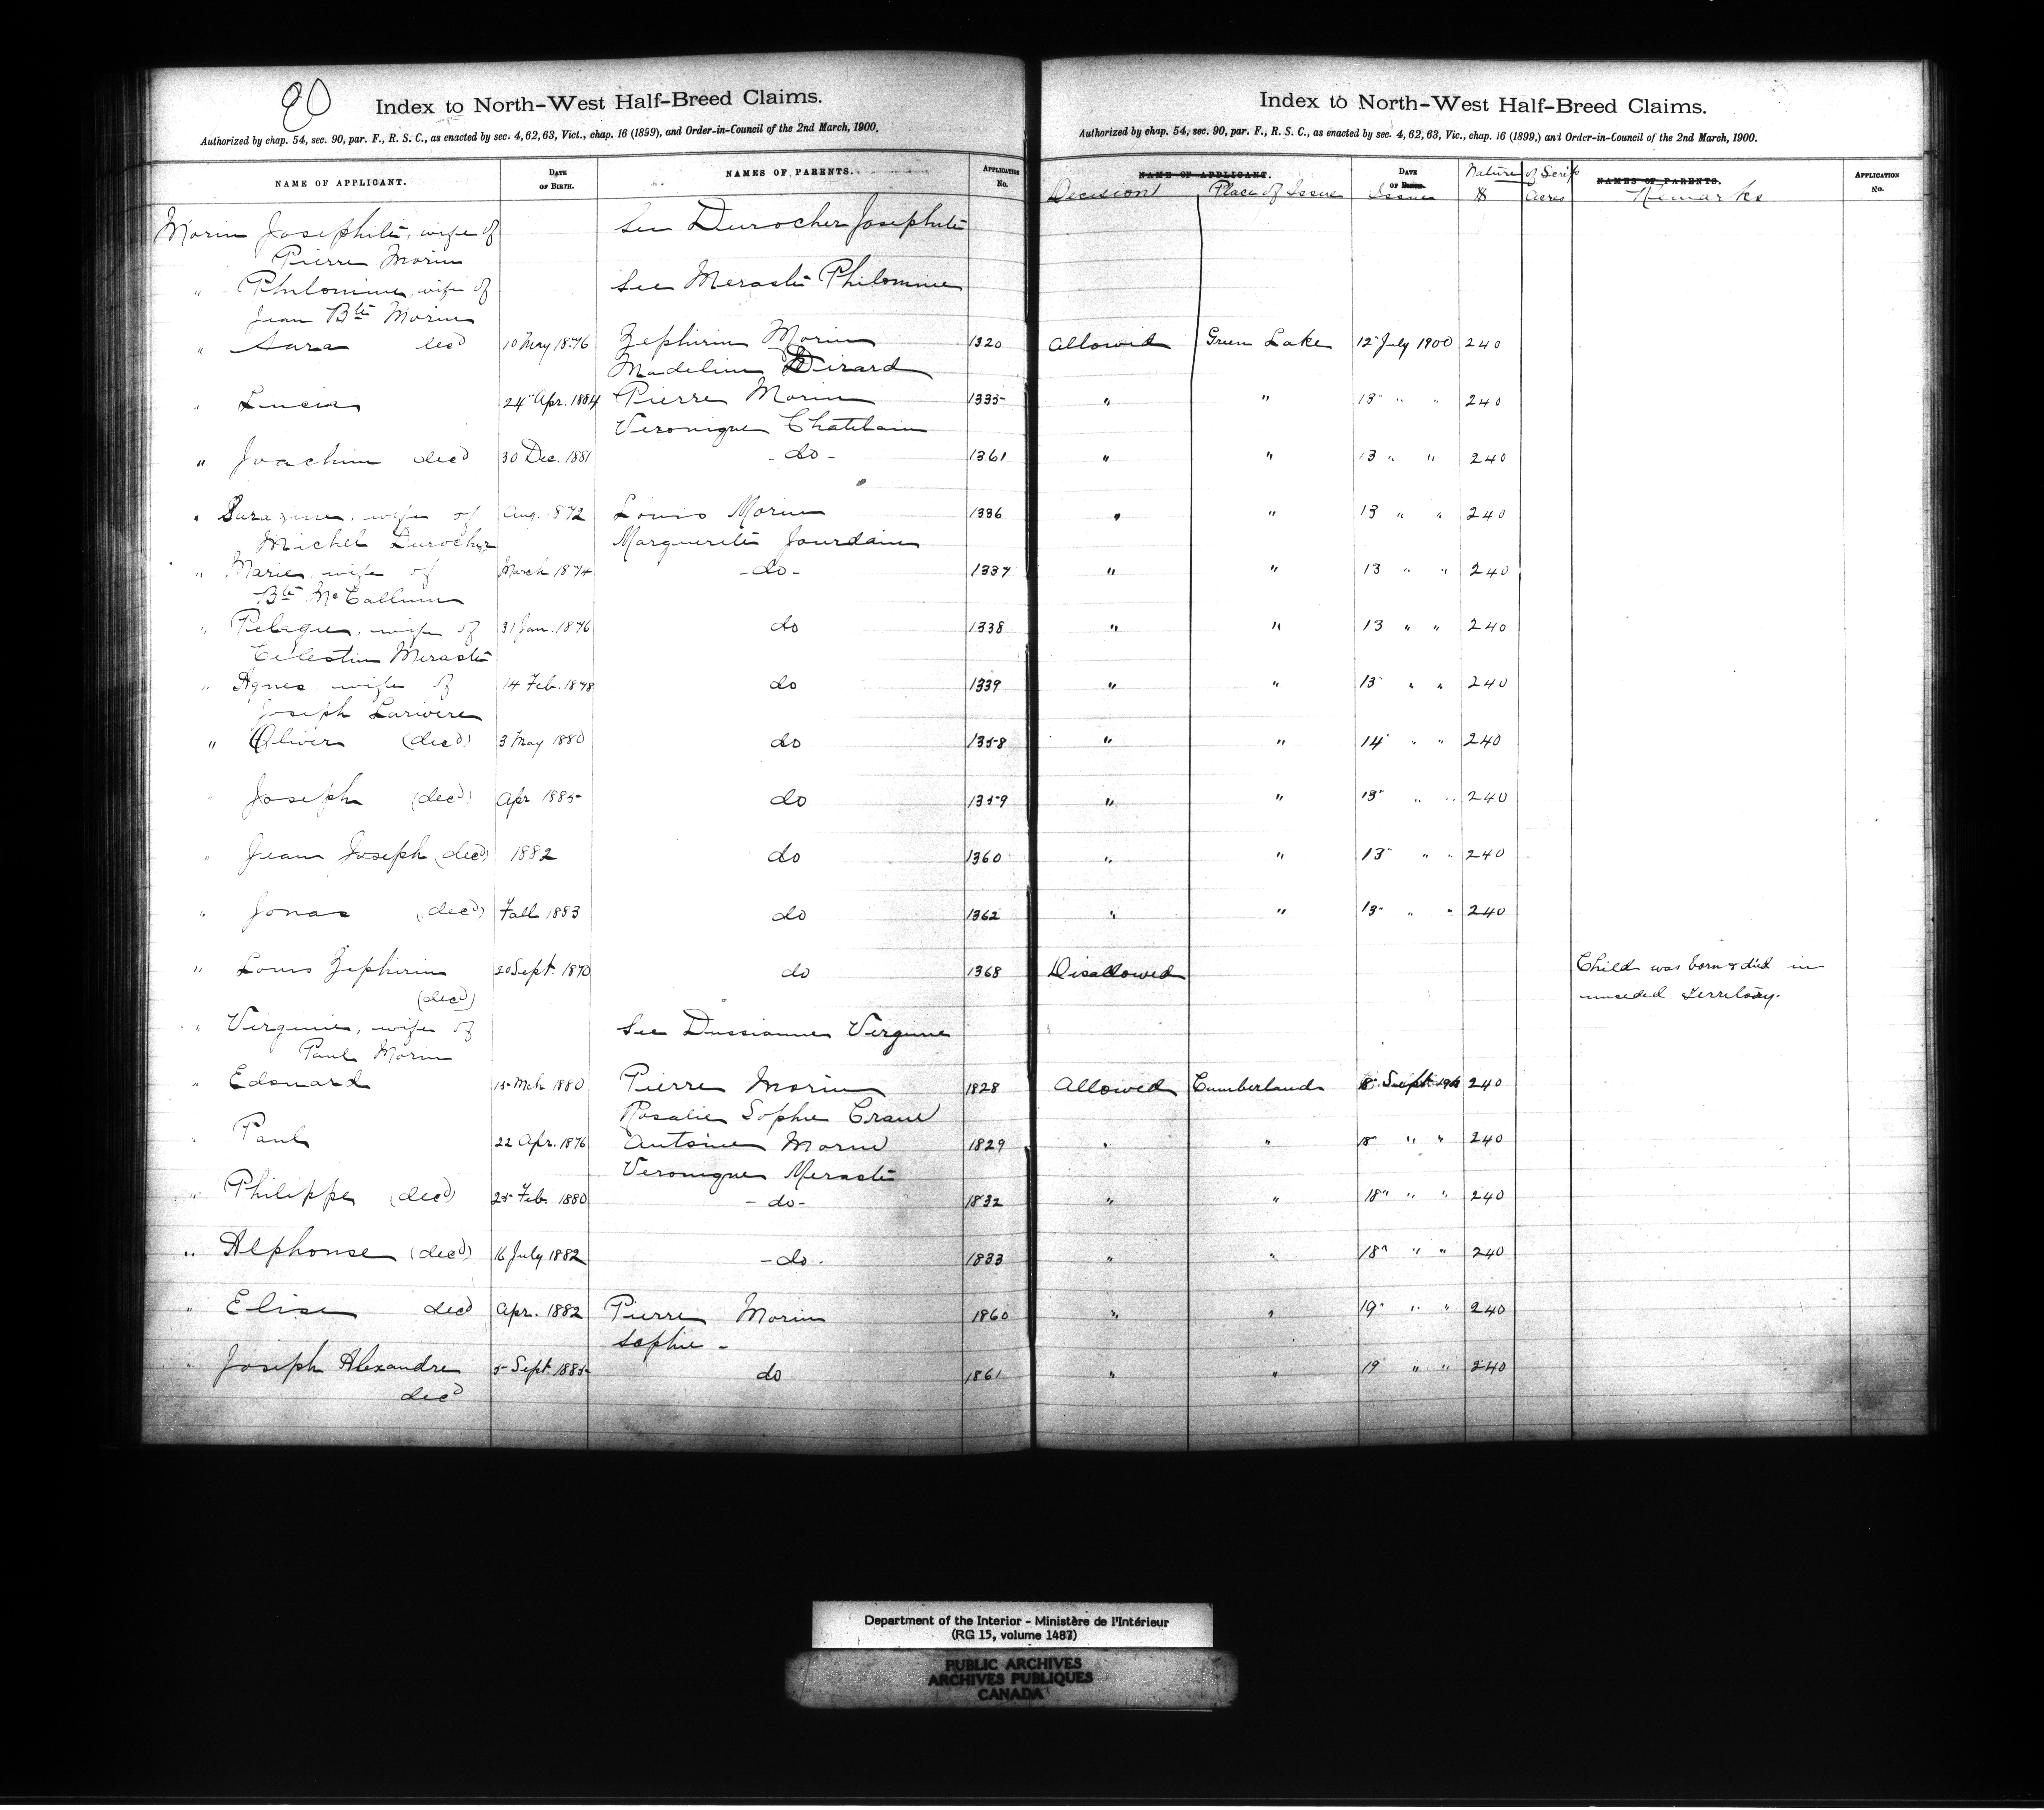 90
Index to North-West Half-Breed Claims.
Authorized by chap. 54, sec. 90, par. F., R. S. C., as enacted by sec. 4, 62, 63, Vict., chap. 16 (1899), and Order-in-Council of the 2nd March, 1900.
NAME OF APPLICANT. DATE OF BIRTH. NAMES OF PARENTS. APPLICATION No.
Morin Josephite, wife of See Durocher Josephite
Pierre Morin
" Philomine, wife of See Merasté Philomine
Jean Bte Morin
" Sara decd 10 May 1876 Zephirin Morin 1320
Madeline Dirard
" Lucia 24 Apr. 1884 Pierre Morin 1335
Veronique Chatelain
" Joachim decd 30 Dec. 1881 - do - 1361
" Sarazine, wife of Aug. 1872 Louis Morin 1336
Michel Durocher Marguerite Jourdain
" Marie, wife of March 1874 - do - 1337
Bte McCallum
" Pelagie, wife of 31 Jan. 1876 do 1338
Celestin Merasté
" Agnes, wife of 14 Feb. 1878 do 1339
Joseph Larivere
" Oliver (decd) 3 May 1880 do 1358
" Joseph (decd) Apr 1885 do 1359
" Jean Joseph (decd) 1882 do 1360
" Jonas (decd) Fall 1883 do 1362
" Louis Zepherin 20 Sept. 1870 do 1368
(decd)
" Virginie, wife of See Dussianme Virginie
Paul Morin
" Edouard 15 Mch 1880 Pierre Morin 1828
Rosalie Sophie Crane
" Paul 22 Apr. 1876 Antoine Morin 1829
Veronique Merasté
" Philippe (decd) 25 Feb. 1880 - do - 1832
" Alphonse (decd) 16 July 1882 - do - 1833
" Elise decd Apr. 1882 Pierre Morin 1860
Sophie -
" Joseph Alexandre 5 Sept. 1885 do 1861
decd
Index to North-West Half-Breed Claims.
Authorized by chap. 54, sec. 90, par. F., R. S. C., as enacted by sec. 4, 62, 63, Vic., chap. 16 (1899,) and Order-in-Council of the 2nd March, 1900.
NAME OF APPLICANT. DATE OF BIRTH. Nature of Scrip NAMES OF PARENTS. APPLICATION No.
Decision Place of Issue Issue $ Acres Remarks
Allowed Green Lake 12 July 1900 240
" " 13 " " 240
" " 13 " " 240
" " 13 " " 240
" " 13 " " 240
" " 13 " " 240
" " 13 " " 240
" " 14 " " 240
" " 13 " " 240
" " 13 " " 240
" " 13 " " 240
Disallowed Child was born & died in
unceded Territory.
Allowed Cumberland 240
" " 18 " " 240
" " 18 " " 240
" " 18 " " 240
" " 19 " " 240
" " 19 " " 240
Department of the Interior - Ministère de l'Intérieur
(RG 15, volume 1487)
PUBLIC ARCHIVES
ARCHIVES PUBLIQUES
CANADA